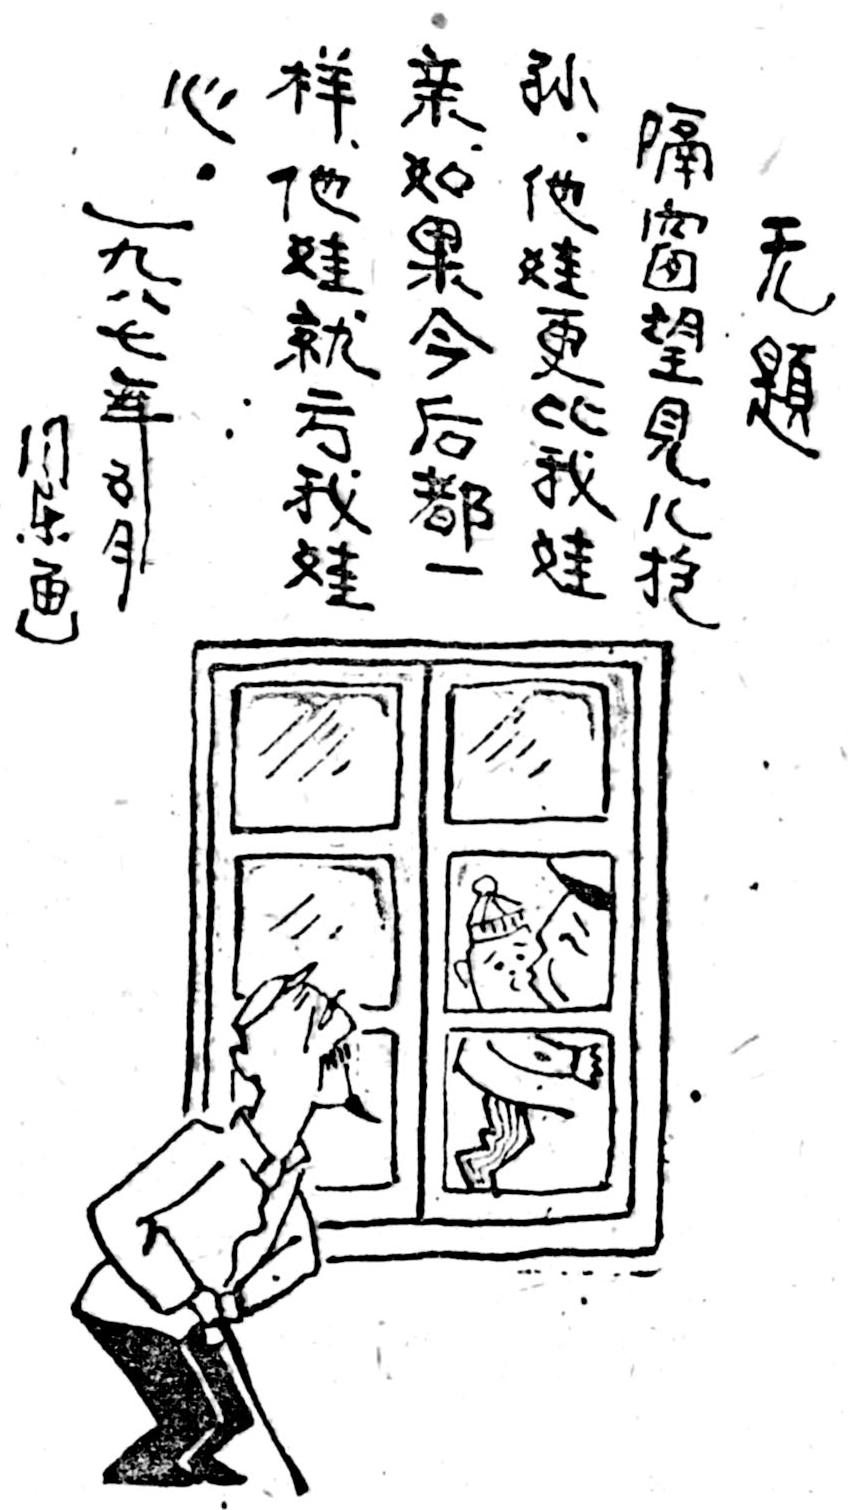 无题
隔窗望见儿抱
孙、他娃更比我娃
亲、如果今后都一
样、他娃就亏我娃
心。
一九八七年五月
画